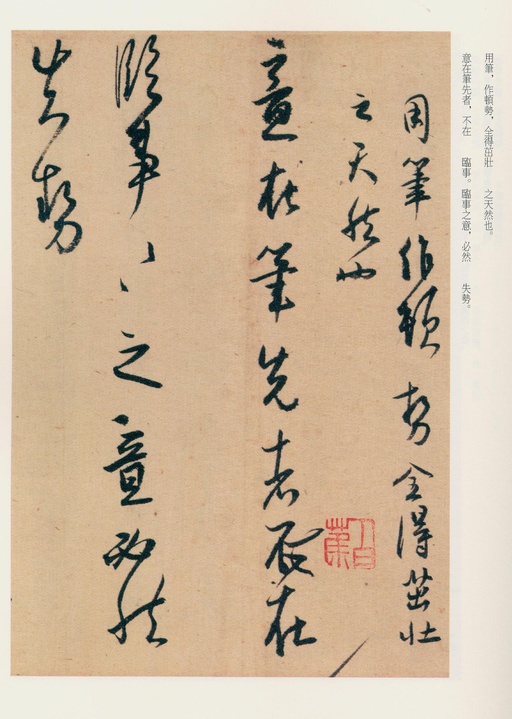 用筆，作頓勢，全得茁壯　之天然也。
意在筆先者，不在　臨事。臨事之意，必然　失勢。
用筆作頓勢全得茁壯
之天然也
意在筆先者不在
臨事〻〻之意必然
失勢